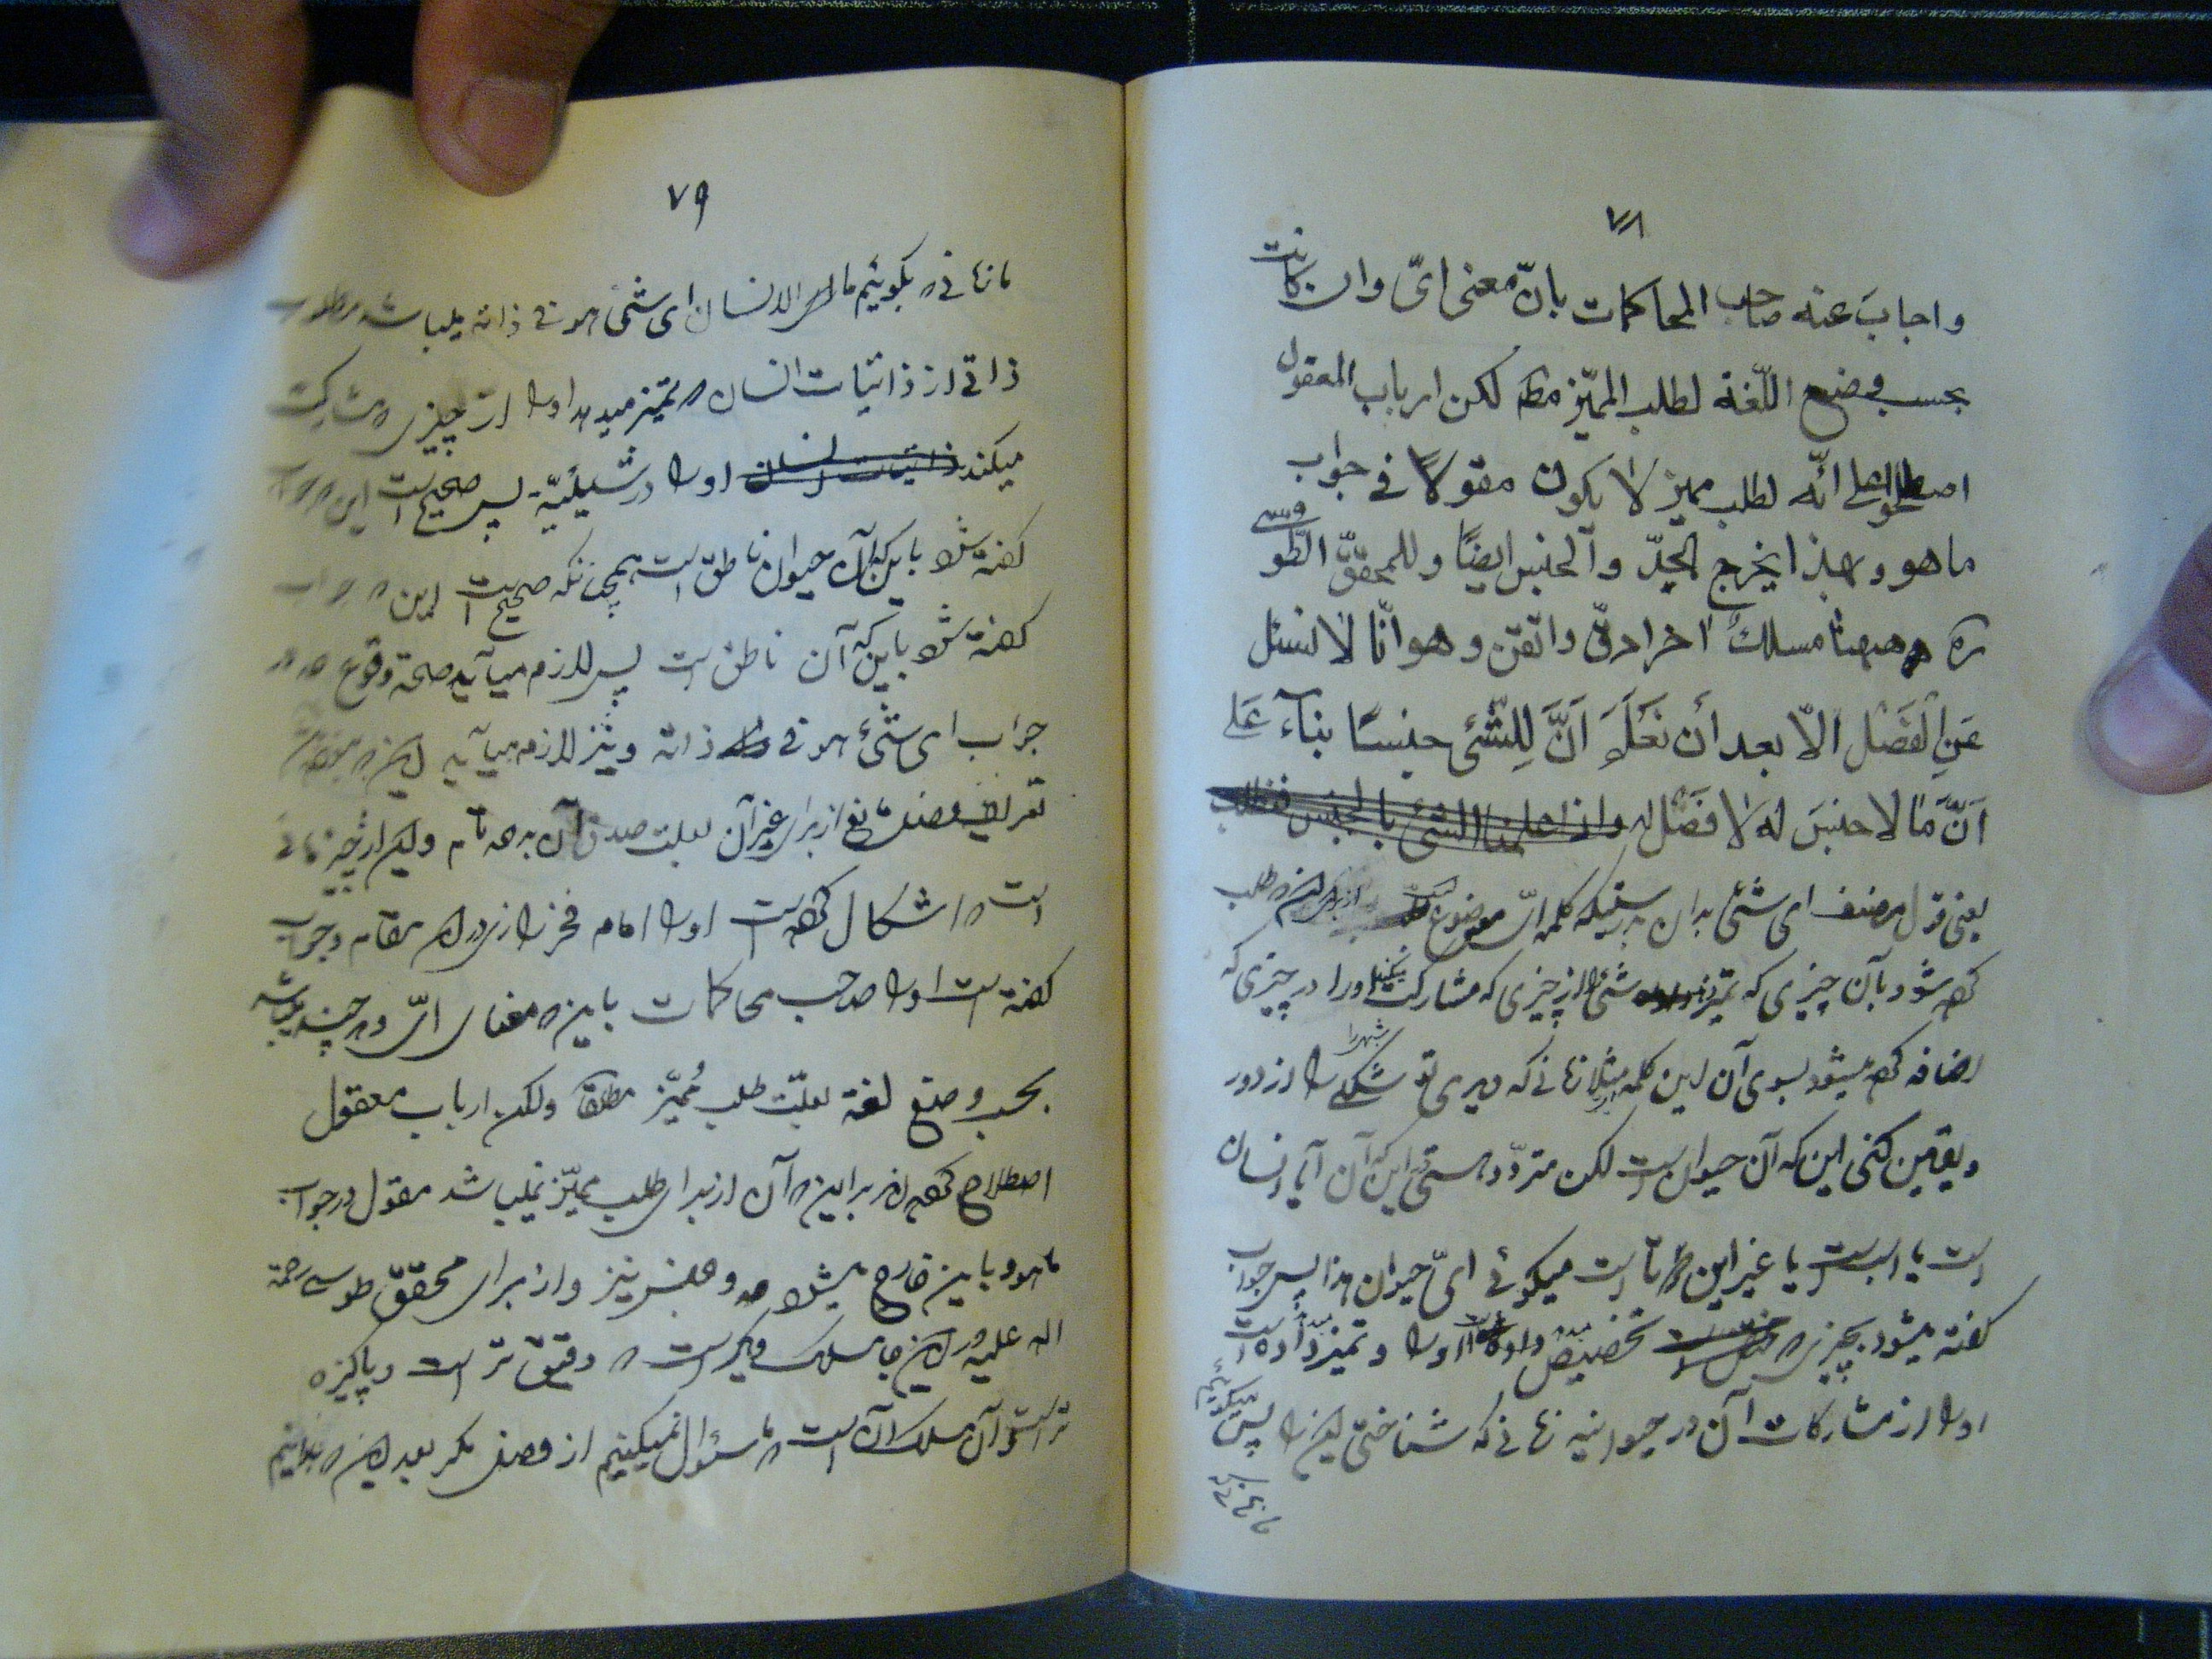 ۷۸
واجاب عنه صاحب المحاکمات بانّ معنی ایّ وان کانت
بحسب وضع اللّغة لطلب الممیّز مط لکن ارباب المعقول
اصطلحوا علی انّه لطلب ممیز لا یکون مقولاً فی جواب
ماهو وبهذا یخرج الحدّ والجنس ایضاً وللمحقّق الطّوسی
ره ههنا مسلکٌ اخر ادقّ واتقن وهو انّا لا نسئل
عَنِ الفَصْل الّا بعد أن نعلَمَ اَنَّ لِلشّئی جنسًا بنآءً عَلی
اَنَّ مَا لا جنسَ لَهُ لا فَصْلَ له واذا علمنا الشئ بالجنس فنطلب
یعنی قول مصنف ای شئ بدان بدرستیکه کلمه ایّ موضوع است از برای اینکه طلب
کرده شود بآن چیزی که تمیز شئ را از چیزی که مشارکت اورا در چیزی که
اضافه کرده میشود بسوی آن این کلمه مثلا زمانی که دیدی تو شکلی را از دور
ویقین کنی این که آن حیوان است لکن متردّد هستی این که آن آیا انسان
است یا اسب است یا غیر این تا است میگوئی ایّ حیوان هذا پس جواب
گفته میشود بچیزی که تخصیص اورا وتمیز داده است
اورا از مشارکات آن در حیوانیه زمانی که شناختی این را پس میگوئیم
مازمانی که
۷۹
مازمانی که بگوئیم ما الانسان ای شئ هو فی ذاته میباشد مطلوب
ذاتی از ذاتیات انسان که تمیز میدهد اورا از چیزی که مشارکت
میکند ذاتیات انسان اورا در شیئیّة پس صحیح است این که جواب
گفته شود باین که آن حیوان ناطق است همچنانکه صحیح است این که جواب
گفته شود باین که آن ناطق است پس لازم میآید صحة وقوع حد در
جواب ای شئ هو فی ذاته ونیز لازم میآید این که
تعریف فصل مانع از برای غیر آن بعلت صدق آن بر حد تام ولیکن این چیزی
است که اشکال کرده است اورا امام فخر رازی در این مقام وجواب
گفته است اورا صاحب محاکمات باین که معنای ایّ هر چند میباشد
بحسب وضع لغة بعلّت طلب مُمیّز مطلقا ولکن ارباب معقول
اصطلاح کرده اند بر این که آن از برای طلب ممیّز نمیباشد مقول در جواب
ماهو وباین خارج میشود حد وجنس نیز واز برای محقق طوسی رحمة
الله علیه در این جا مسلک دیگر است که دقیق تر است وپاکیزه
تر است وآن مسلک آن است که ما سئوال نمیکنیم از فصل مگر بعد این که بدانیم